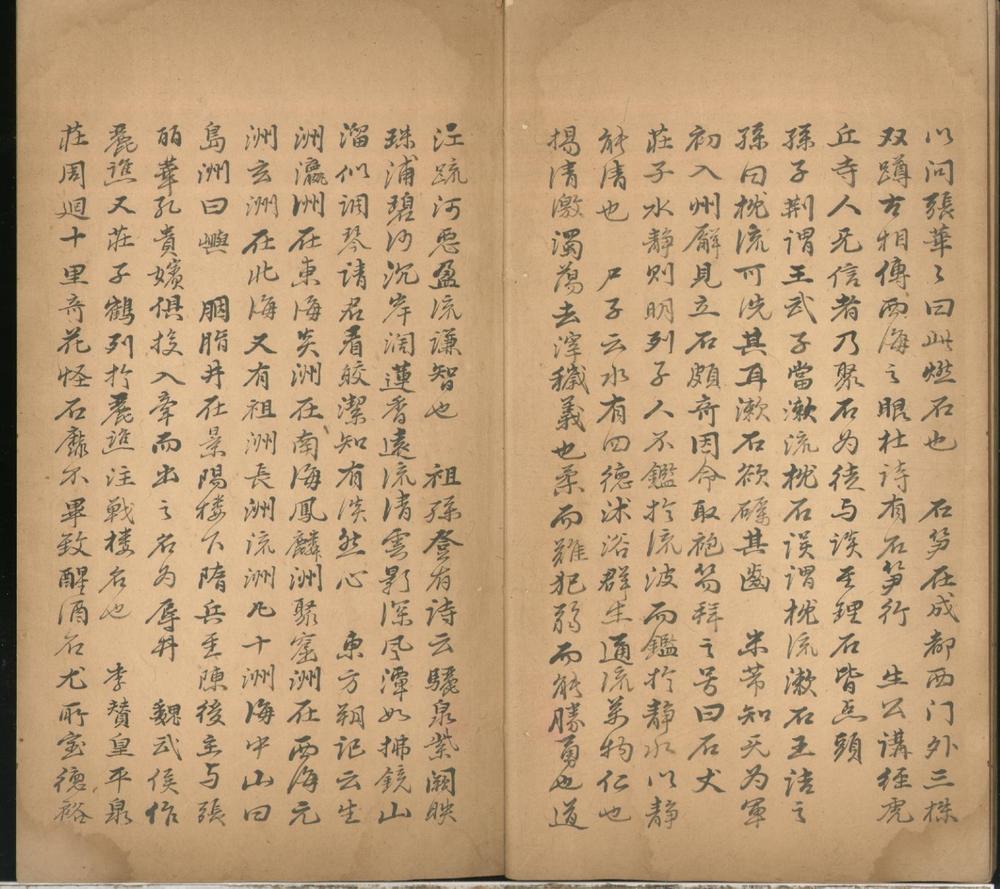 以问張華々曰此燃石也　石笋在成都西门外三株
双蹲古相傳西海之眼杜诗有石笋行　生公講經虎
丘寺人无信者乃聚石为徒与谈至理石皆点頭
孫子荆谓王武子當漱流枕石误谓枕流漱石王诘之
孫曰枕流可洗其耳漱石欲礪其齒　米芾知无为軍
初入州廨見立石頗奇因命取袍笏拜之号曰石丈
莊子水静则明列子人不鑑扵流波而鑑扵静水以静
能清也　尸子云水有四德沐浴群生通流万物仁也
揚清激濁荡去滓穢義也柔而難犯弱而能勝勇也道
江疏河恶盈流谦智也　祖孫登有诗云驪泉紫阙映
珠浦碧沙沉岸阔蓮香遠流清雲影深风潭如拂鏡山
溜似调琴请君看皎潔知有淡然心　東方朔记云生
洲瀛洲在東海炎洲在南海鳳麟洲聚窟洲在西海元
洲玄洲在北海又有祖洲長洲流洲凡十洲海中山曰
島洲曰嶼　胭脂井在景陽楼下隋兵至陳後主与張
丽華孔貴嬪俱投入牵而出之名为辱井　魏武侯作
麗譙又莊子鶴列扵麗譙注戰楼名也　李贊皇平泉
莊周廻十里奇花怪石靡不畢致醒酒石尤所宝德裕